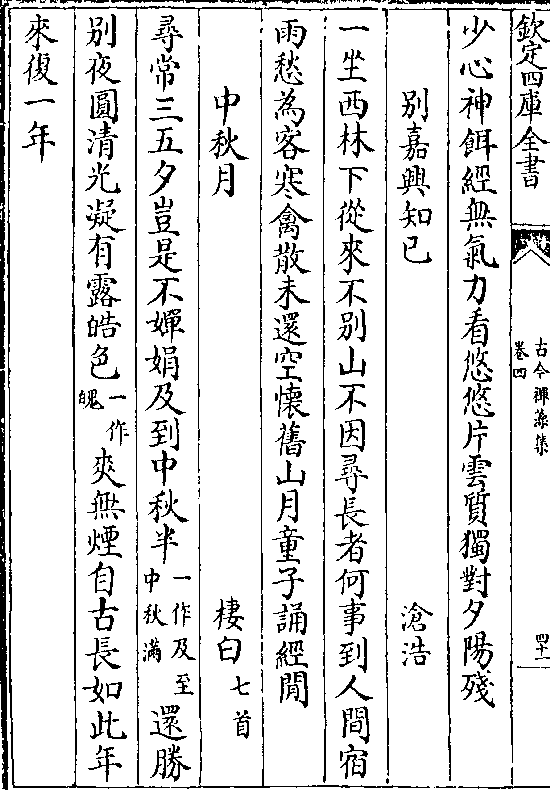 欽定四庫全書
古今禪藻集
卷四
四十一
少心神餌經無氣力看悠悠片雲質獨對夕陽殘
別嘉興知已 滄浩
一坐西林下從來不別山不因尋長者何事到人間宿
雨愁為客寒禽散未還空懷舊山月童子誦經閒
中秋月 棲白七首
尋常三五夕豈是不嬋娟及到中秋半一作及至中秋滿還勝
別夜圓清光凝有露皓色一作皚爽無煙自古長如此年
來復一年